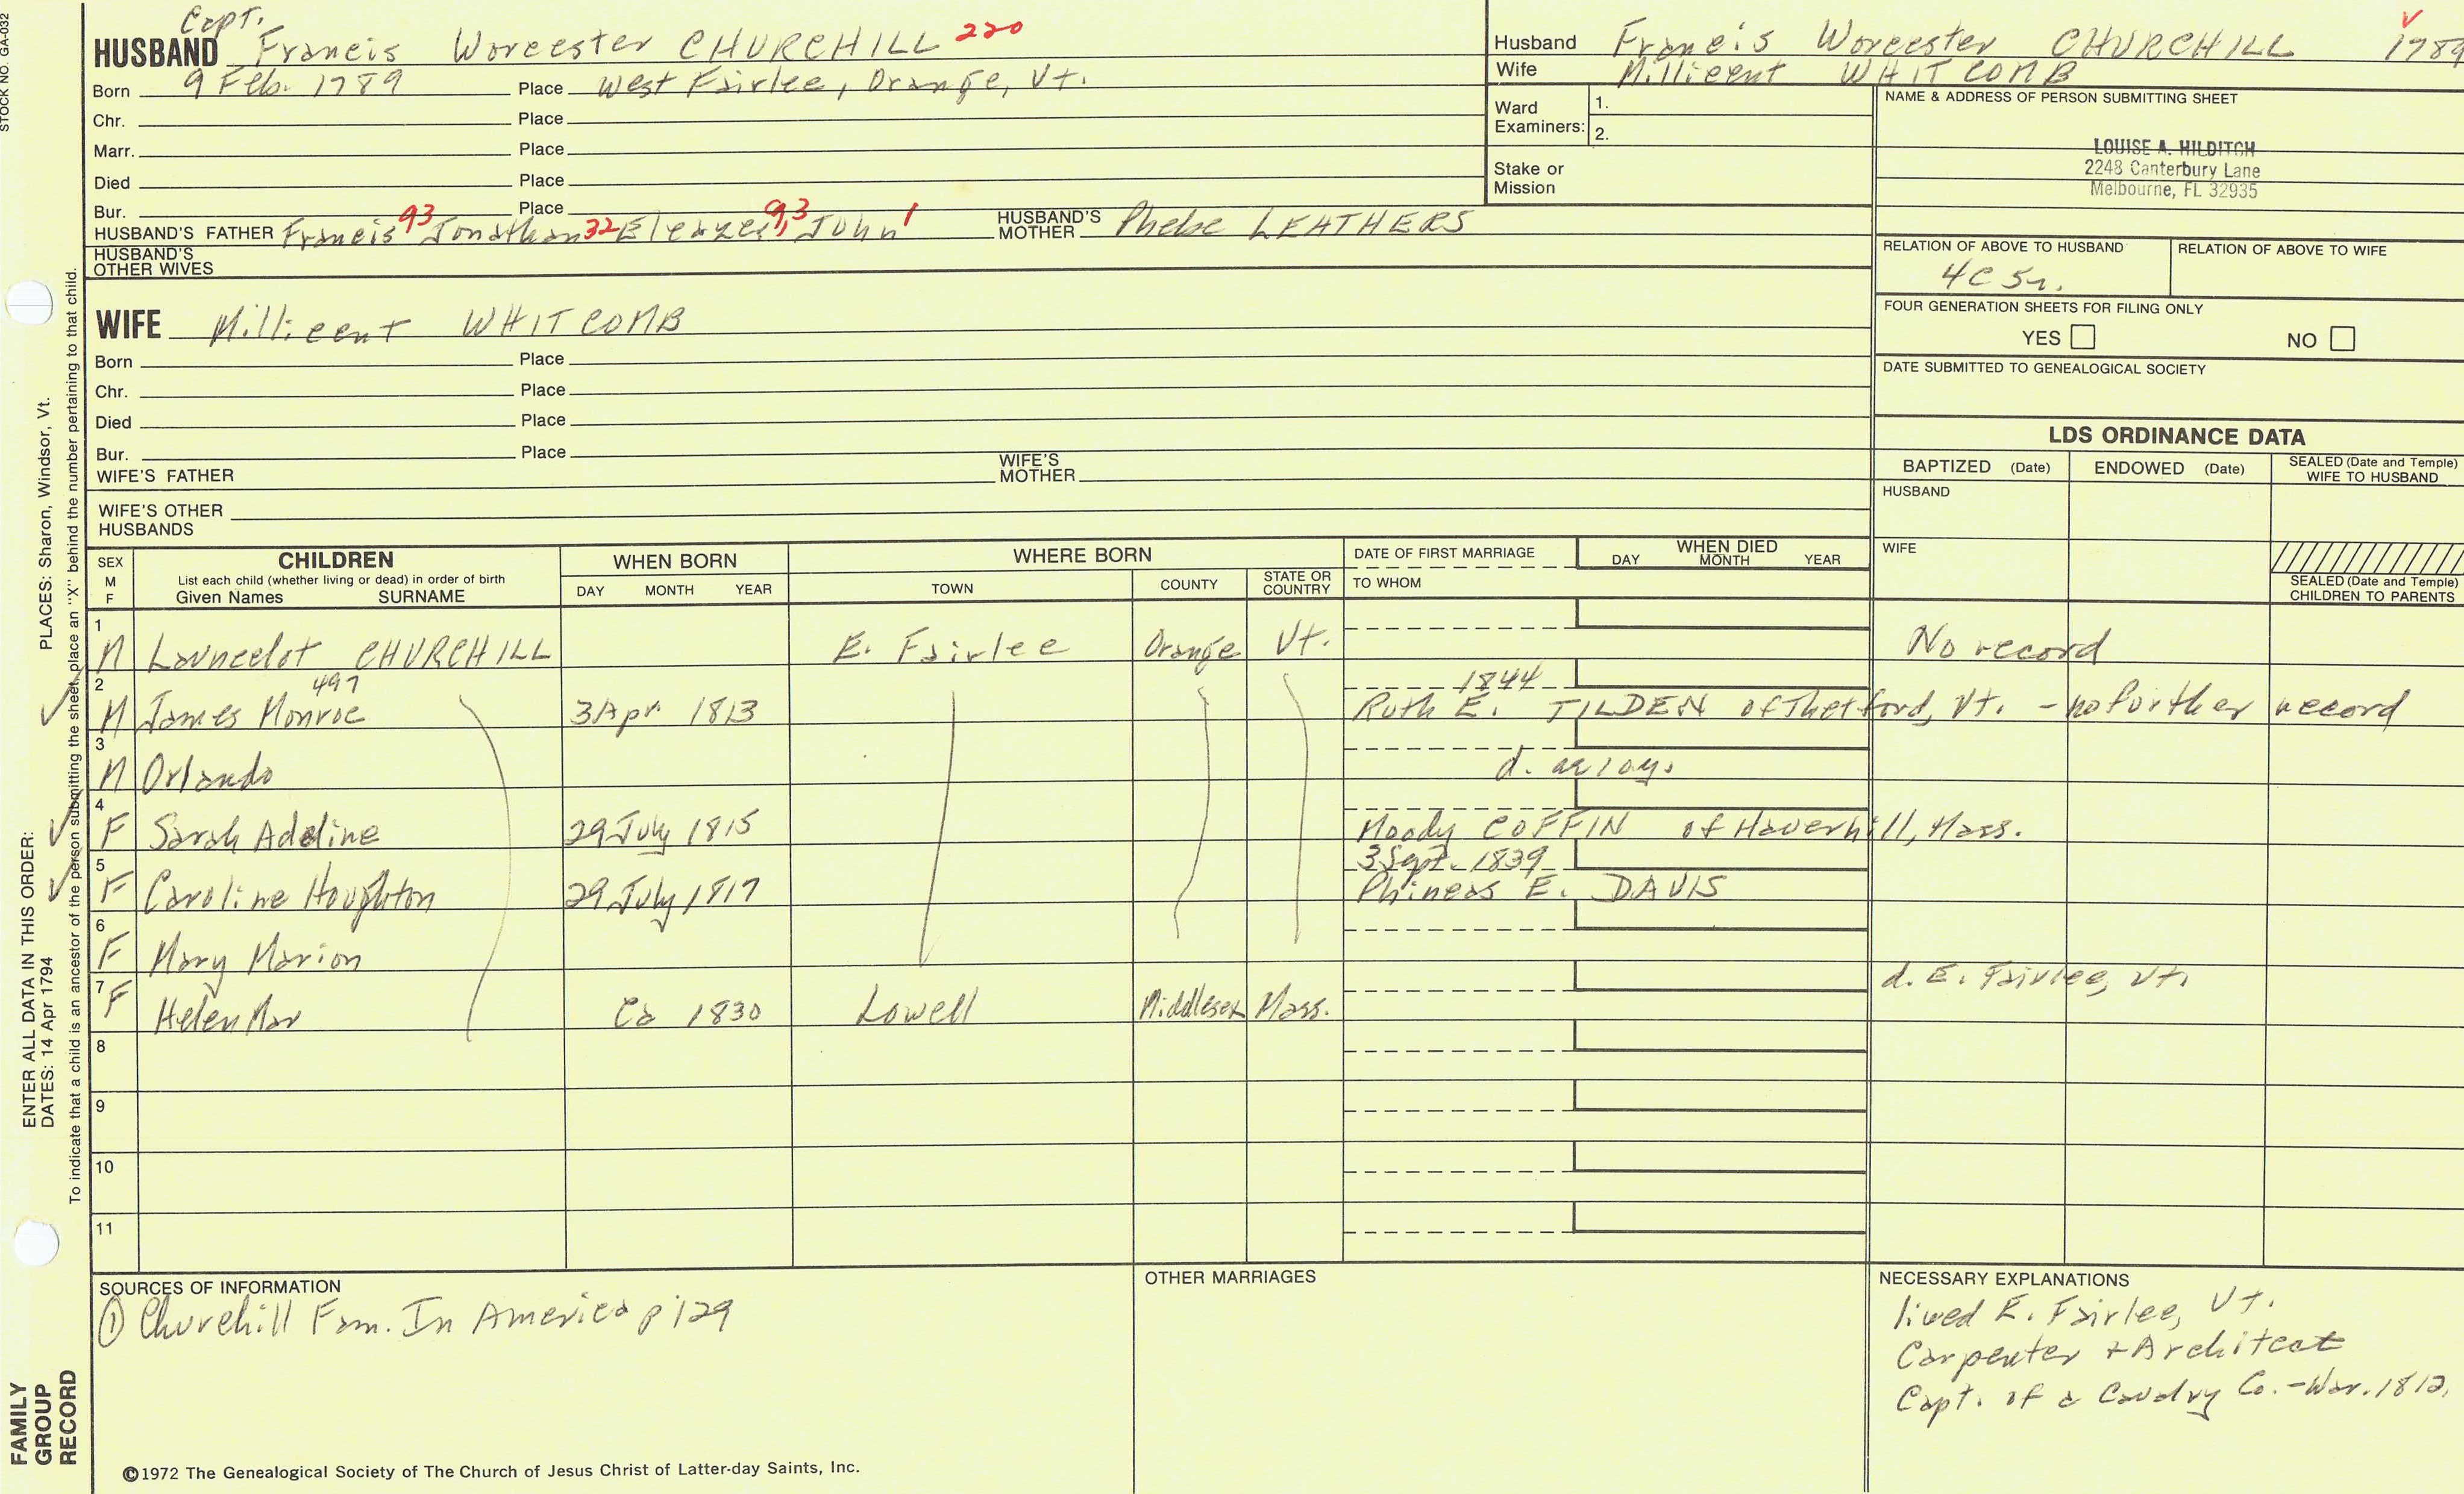 STOCK NO. GA-032
Capt.
HUSBAND Francis Worcester CHURCHILL 220
Born 9 Feb. 1789 Place West Fairlee, Orange, Vt.
Chr. Place
Marr. Place
Died Place
Bur. Place
HUSBAND'S FATHER Francis 93 Jonathan 32 Eleazer 9,3 John 1 HUSBAND'S MOTHER Phebe LEATHERS
HUSBAND'S OTHER WIVES
Husband Francis Worcester CHURCHILL 1789
Wife Millicent WHITCOMB
Ward Examiners: 1.
2.
Stake or Mission
NAME & ADDRESS OF PERSON SUBMITTING SHEET
LOUISE A. HILDITCH
2248 Canterbury Lane
Melbourne, FL 32935
RELATION OF ABOVE TO HUSBAND RELATION OF ABOVE TO WIFE
4C 5r.
FOUR GENERATION SHEETS FOR FILING ONLY
YES NO
DATE SUBMITTED TO GENEALOGICAL SOCIETY
WIFE Millicent WHITCOMB
Born Place
Chr. Place
Died Place
Bur. Place
WIFE'S FATHER WIFE'S MOTHER
WIFE'S OTHER HUSBANDS
LDS ORDINANCE DATA
BAPTIZED (Date) ENDOWED (Date) SEALED (Date and Temple) WIFE TO HUSBAND
HUSBAND
WIFE
SEALED (Date and Temple) CHILDREN TO PARENTS
SEX M F CHILDREN List each child (whether living or dead) in order of birth Given Names SURNAME
WHEN BORN DAY MONTH YEAR
WHERE BORN TOWN COUNTY STATE OR COUNTRY
DATE OF FIRST MARRIAGE TO WHOM
WHEN DIED DAY MONTH YEAR
1 M Launcelot CHURCHILL E. Fairlee Orange Vt. No record
497 1844
2 M James Monroe 3 Apr 1813 Ruth E. TILDEN of Thetford, Vt. - no further record
3 M Orlando d. a. 10 y.
4 F Sarah Adeline 29 July 1815 Moody COFFIN of Haverhill, Mass.
3 Sept. 1839
5 F Caroline Houghton 29 July 1817 Phineas E. DAVIS
6 F Mary Marion
d. E. Fairlee, Vt.
7 F Helen Mar Ca 1830 Lowell Middlesex Mass.
8
9
10
11
SOURCES OF INFORMATION
① Churchill Fam. In America p 129
OTHER MARRIAGES
NECESSARY EXPLANATIONS
lived E. Fairlee, Vt.
Carpenter + Architect
Capt. of a Cavalry Co. - War. 1812,
©1972 The Genealogical Society of The Church of Jesus Christ of Latter-day Saints, Inc.
FAMILY GROUP RECORD
ENTER ALL DATA IN THIS ORDER:
DATES: 14 Apr 1794 PLACES: Sharon, Windsor, Vt.
To indicate that a child is an ancestor of the person submitting the sheet, place an "X" behind the number pertaining to that child.